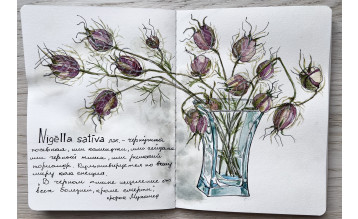 Nigella sativa лат. - чернушка
посевная, или калинджи, или сейдана
или черный тмин, или римский
кориандр. Культивируется по всему
миру как специя.
"В черном тмине исцеление от
всех болезней, кроме смерти."
пророк Мухаммад